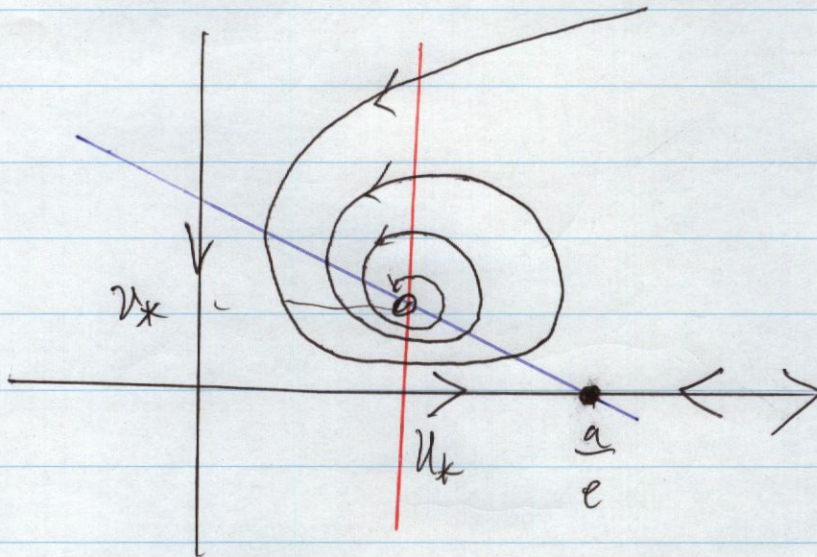 v*
u*
a
e